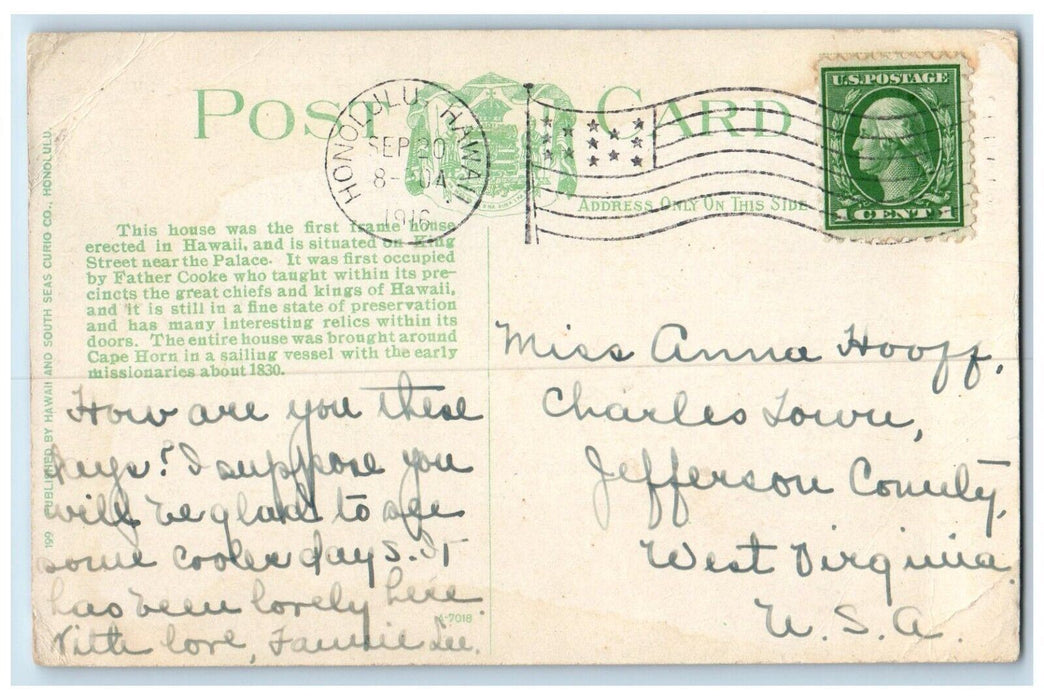 POST CARD
HONOLULU HAWAII
SEP 20
1916
U.S. POSTAGE
1 CENT 1
ADDRESS ONLY ON THIS SIDE
199 PUBLISHED BY HAWAII AND SOUTH SEAS CURIO CO., HONOLULU.
This house was the first frame house
erected in Hawaii, and is situated on King
Street near the Palace. It was first occupied
by Father Cooke who taught within its pre-
cincts the great chiefs and kings of Hawaii,
and it is still in a fine state of preservation
and has many interesting relics within its
doors. The entire house was brought around
Cape Horn in a sailing vessel with the early
missionaries about 1830.
How are you these
days? I suppose you
will be glad to see
some cooler days. It
has been lovely here.
With love, Fannie Lee.
A-7018
Miss Anna Hooff,
Charles Town,
Jefferson County,
West Virginia
U.S.A.